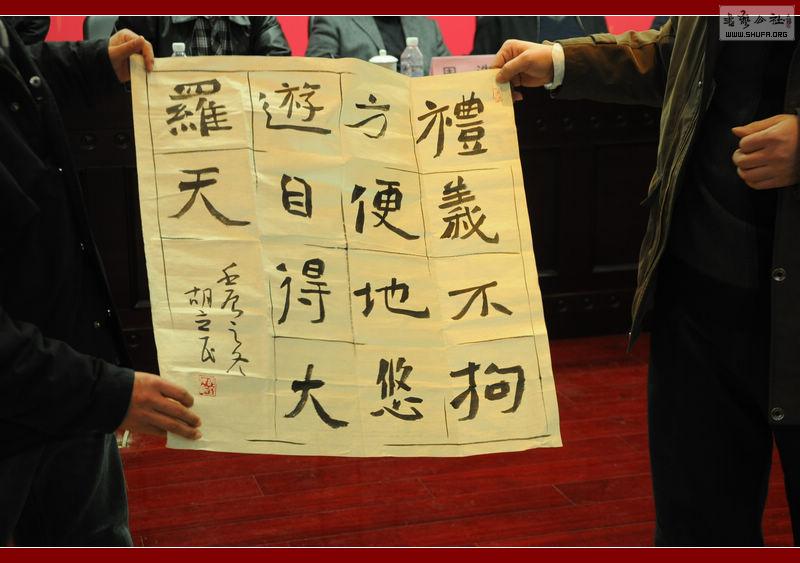 禮義不拘
方便地悠
遊自得大
羅天
壬辰之冬
胡立民
書藝公社
WWW.SHUFA.ORG